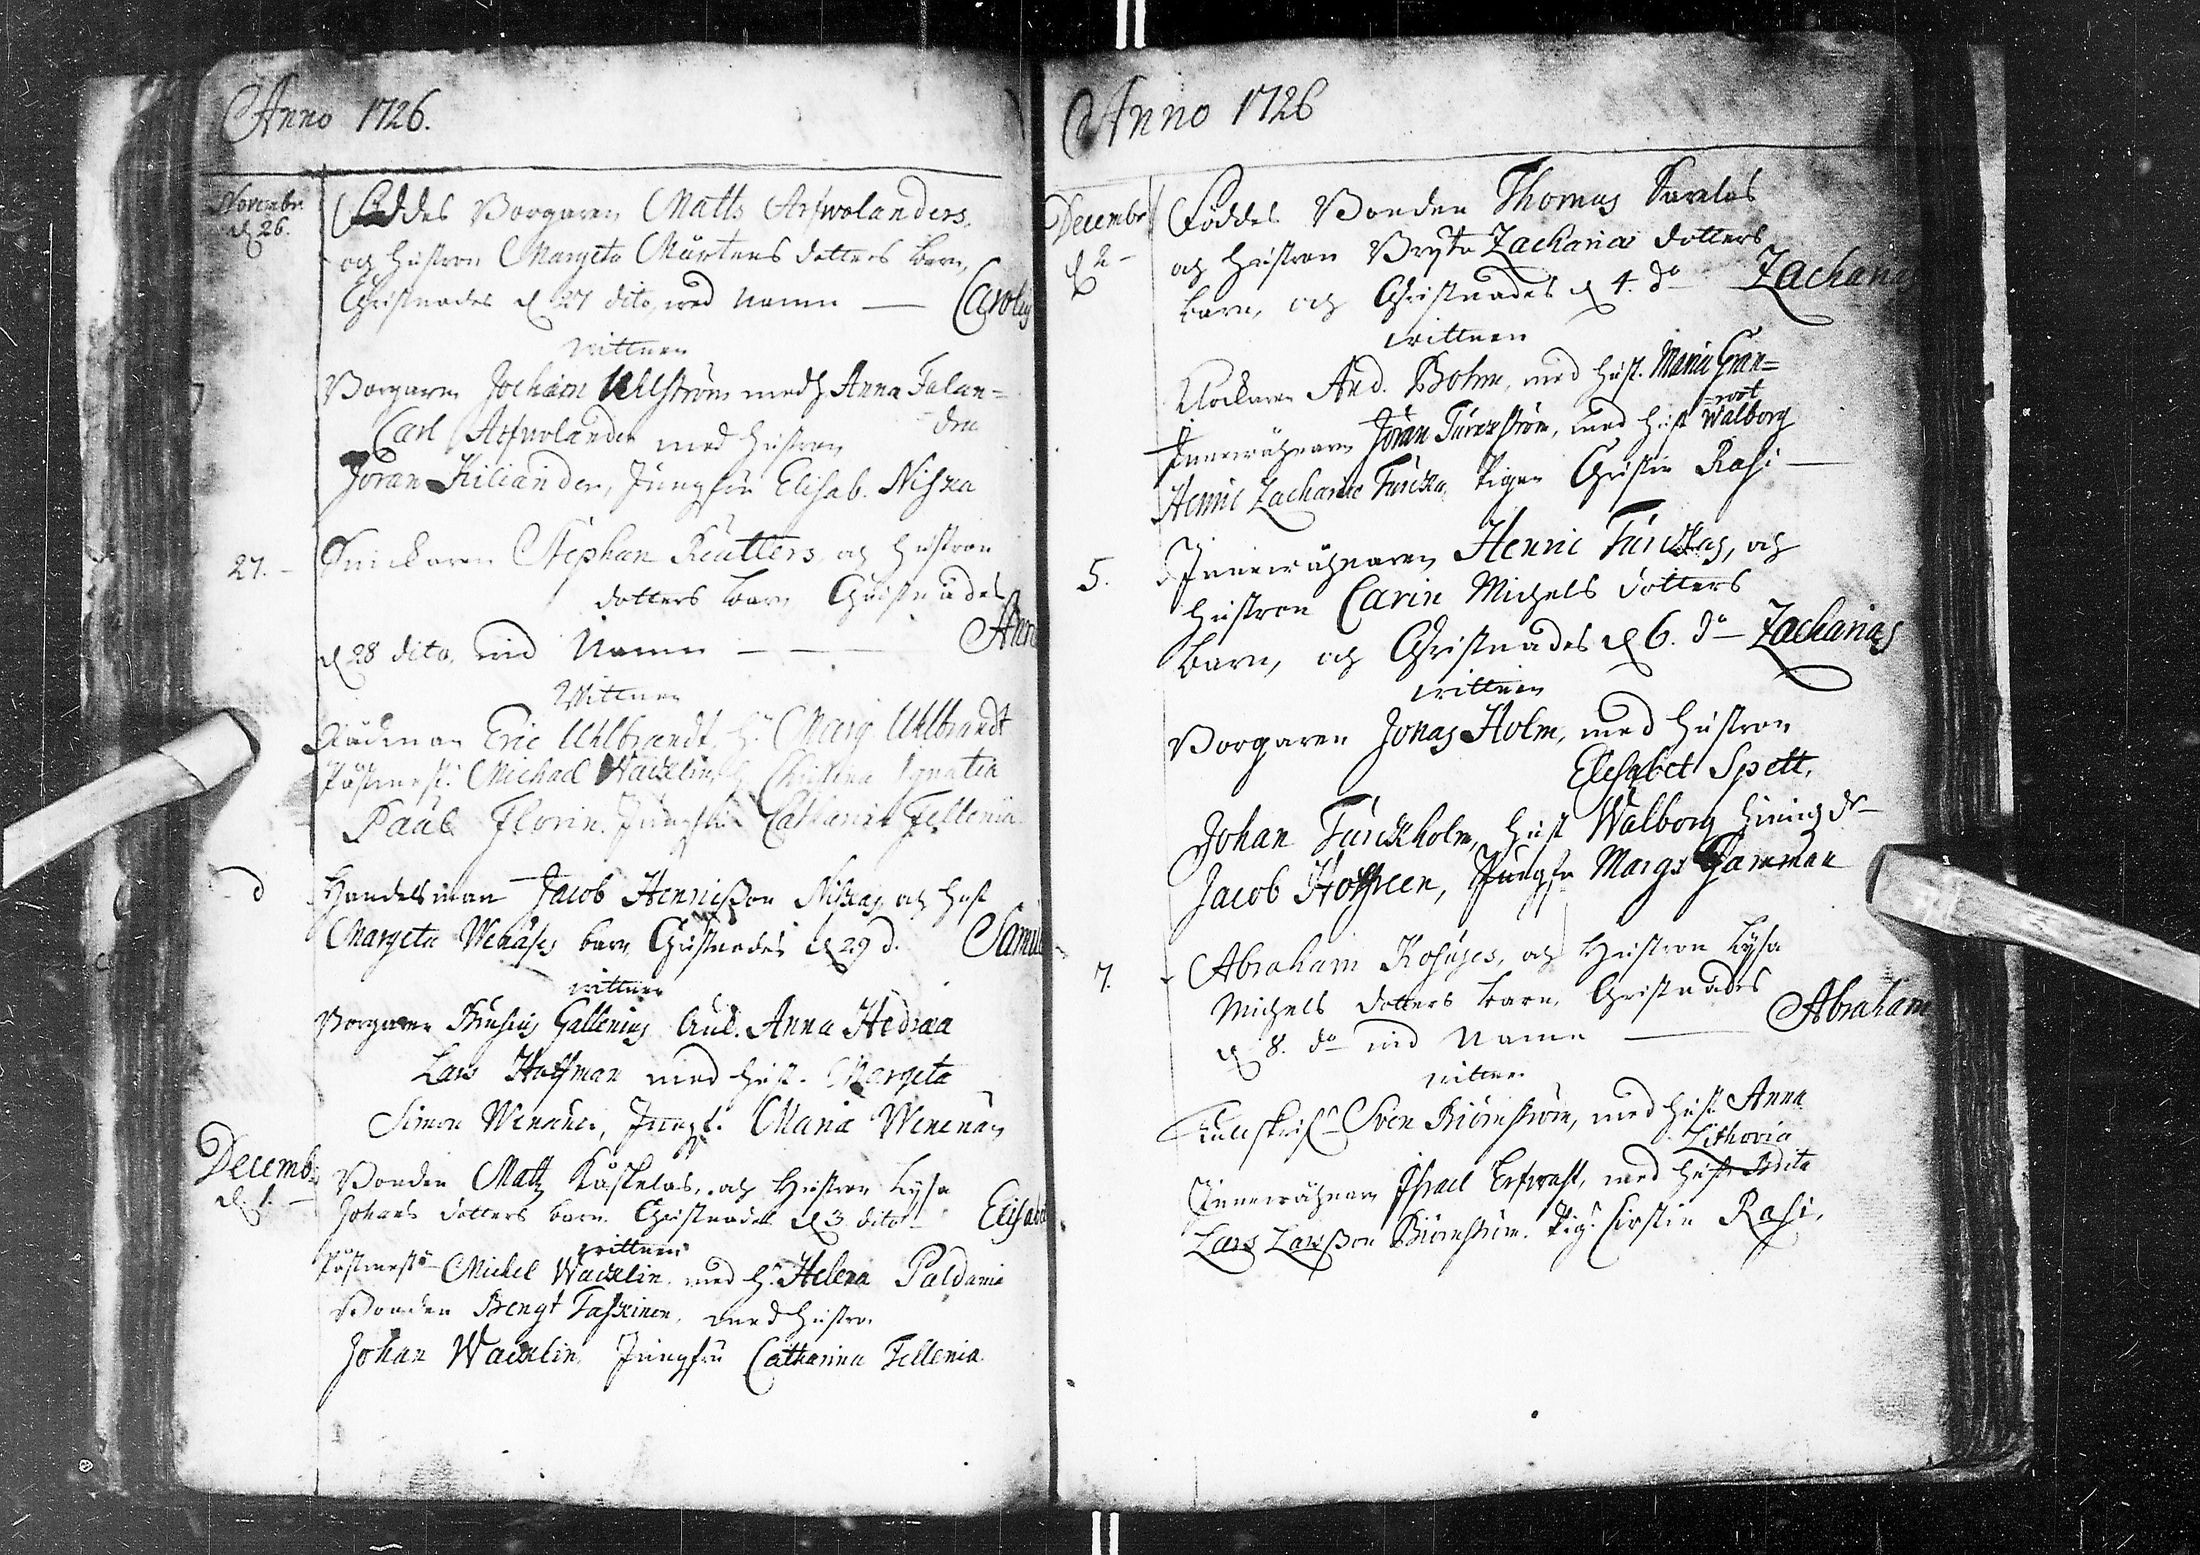 Anno 1726.
Novembr. Föddes Borgaren Matts Arfwolanders,
d 26. och hustron Margeta Mårtens dotters barn,
Christnades d 27 dito, med namn — Carolus
wittnen
Borgaren Jochim Uhlström med Anna Falan=
dra
Carl Arfwolander med hustron
Jöran Kiliander, Jungfru Elisab. Niska
27. – Snickaren Stephan Reutters och hustron
dotters barn Christnades
d 28 dito, med Namn — — — Anna
Wittnen
Rådman Eric Uhlbrandt, h. Marg. Uhlbrandt
Postmest. Michael Wacklin, Christina Ignatia
Paul Florin. Jungfru Catharina Fellenia
d Handelsman Jacob Hennicsson Niskas och hust
Margeta Wenäs barn Christnades d 29 d. Samuel
wittnen
Borgaren Gallenius Anna Hedræa
Lars Hoffman med hust. Margeta
Simon Jungf. Maria
Decemb. Bonden Matts Kåskelas, och Hustron Lysa
d. 1. – Johans dotters barn. Christnades d 3 dito – Elisabet
wittnen
Postmest. Michel Wacklin. med h. Helena Paldania
Bonden Bengt Taskinen, med hustro.
Johan Wacklin. Jungfru Catharina Fellenia.

Anno 1726
Decembr Föddes Bonden Thomas
d 2 – och hustron Bryta Zachariæ dotters
barn, och Christnades d 4. do — Zacharias
wittnen
Klockaren And. Bohm, med hust. Maria Gran=
=rot
Innewåhnaren Jöran Turckström, med hust Walborg
Henric Zachariæ Turcka, Pigan Christin Rasi —
5. Innewåhnaren Henric Turckas, och
hustron Carin Michels dotters
barn, och Christnades d 6. do — Zacharias
wittnen
Borgaren Jonas Holm, med hustron
Elisabet Spett.
Johan Turckholm, hust Walborg Hinrichs dr —
Jacob Hoffreen, Jungfr Marga
7. – Abraham och Hustron Lysa
Michels dotters barn, Christnades
d 8. do med Namn — Abraham
wittnen
Sven Biörnström, med hust. Anna
Lithovia
Innewåhnaren Israel Erfwast, med hust. Brita
Lars Larsson Biörnström. Pig. Cirstin Rasi.